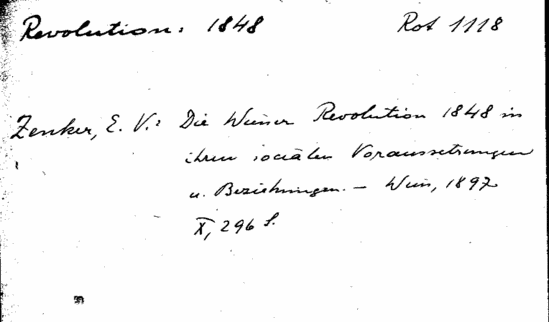 Revolution: 1848 Rot 1118
Zenker, E. V.: Die Wiener Revolution 1848 in
ihren socialen Voraussetzungen
u. Beziehungen. – Wien, 1897
X, 296 S.